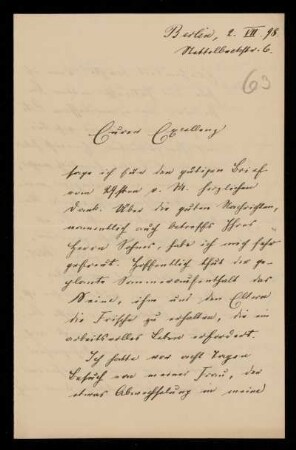 Berlin, 2. VII 98
Nettelbeckstr. 6.
63
Eurer Excellenz
sage ich für den gütigen Brief
vom 29sten v. M. herzlichen
Dank. Über die guten Nachrichten,
namentlich auch betreffs Ihres
Herrn Sohnes, habe ich mich sehr
gefreut. Hoffentlich thut der ge-
plante Sommeraufenthalt das
Seine, ihm und den Eltern
die Frische zu erhalten, die ein
arbeitsvolles Leben erfordert.
Ich hatte vor acht Tagen
Besuch von meiner Frau, der
etwas Abwechselung in meine